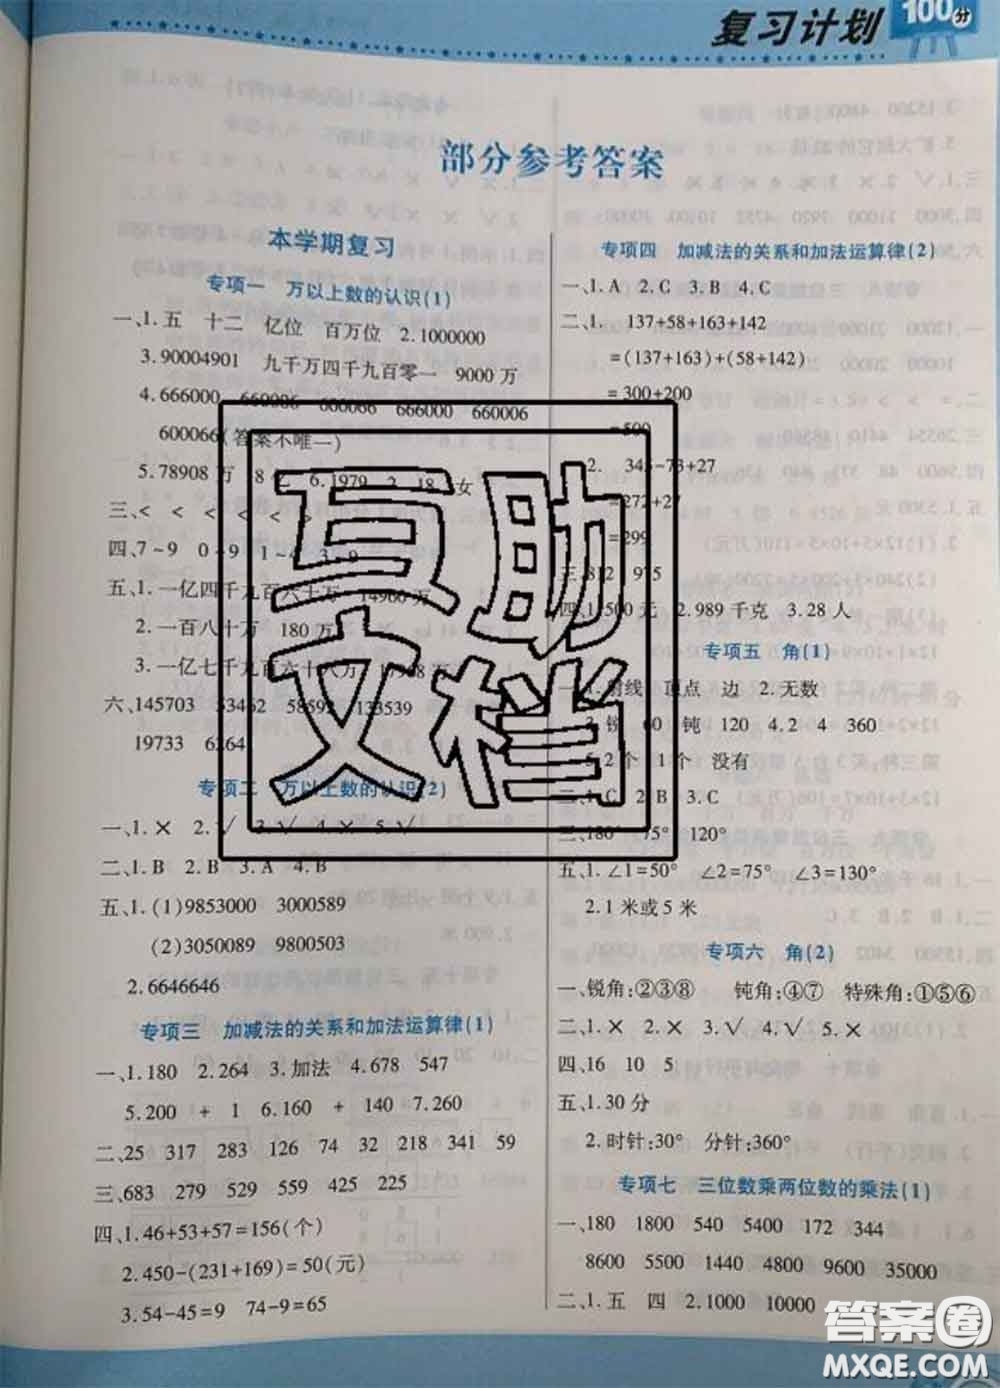 复习计划
100分
部分参考答案
本学期复习
专项一 万以上数的认识(1)
一、1.五 十二 亿位 百万位 2.1000000
3.90004901 九千万四千九百零一 9000万
4.666000 660006 666000 660006
600066(答案不唯一)
5.78908万 6.1979 18 女
三、< < < < <
四、7~9
五、1.一亿四千九百六十万 14960万
2.一百八十万 180万
3.一亿七千九百六十八万
六、145703 58592 133539
19733
专项二 万以上数的认识(2)
一、1.× 2.√ 3.√ 4.× 5.√
二、1.B 2.B 3.A 4.B
五、1.(1)9853000 3000589
(2)3050089 9800503
2.6646646
专项三 加减法的关系和加法运算律(1)
一、1.180 2.264 3.加法 4.678 547
5.200 + 1 6.160 + 140 7.260
二、25 317 283 126 74 32 218 341 59
三、683 279 529 559 425 225
四、1.46+53+57=156(个)
2.450-(231+169)=50(元)
3.54-45=9 74-9=65
专项四 加减法的关系和加法运算律(2)
一、1.A 2.C 3.B 4.C
二、1. 137+58+163+142
=(137+163)+(58+142)
=300+200
=500
2. 345-73+27
=272+27
=299
三、812 975
四、1.500元 2.989千克 3.28人
专项五 角(1)
一、1.射线 顶点 边 2.无数
3.锐 60 钝 120 4.2 4 360
5.2个 1个 没有
二、1.C 2.B 3.C
三、180° 75° 120°
五、1.∠1=50° ∠2=75° ∠3=130°
2.1米或5米
专项六 角(2)
一、锐角:②③⑧ 钝角:④⑦ 特殊角:①⑤⑥
二、1.× 2.× 3.√ 4.√ 5.×
四、16 10 5
五、1.30分
2.时针:30° 分针:360°
专项七 三位数乘两位数的乘法(1)
一、180 1800 540 5400 172 344
8600 5500 1440 4800 9600 35000
二、1.五 四 2.1000 10000
互助
文档
答案圈
MXQE.COM